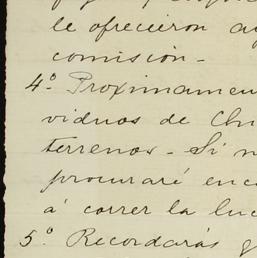 le ofrecieron
comisión-
4º Proximamen
viduos de
terrenos- Si
procuraré en
á correr la luc
5º Recordarás